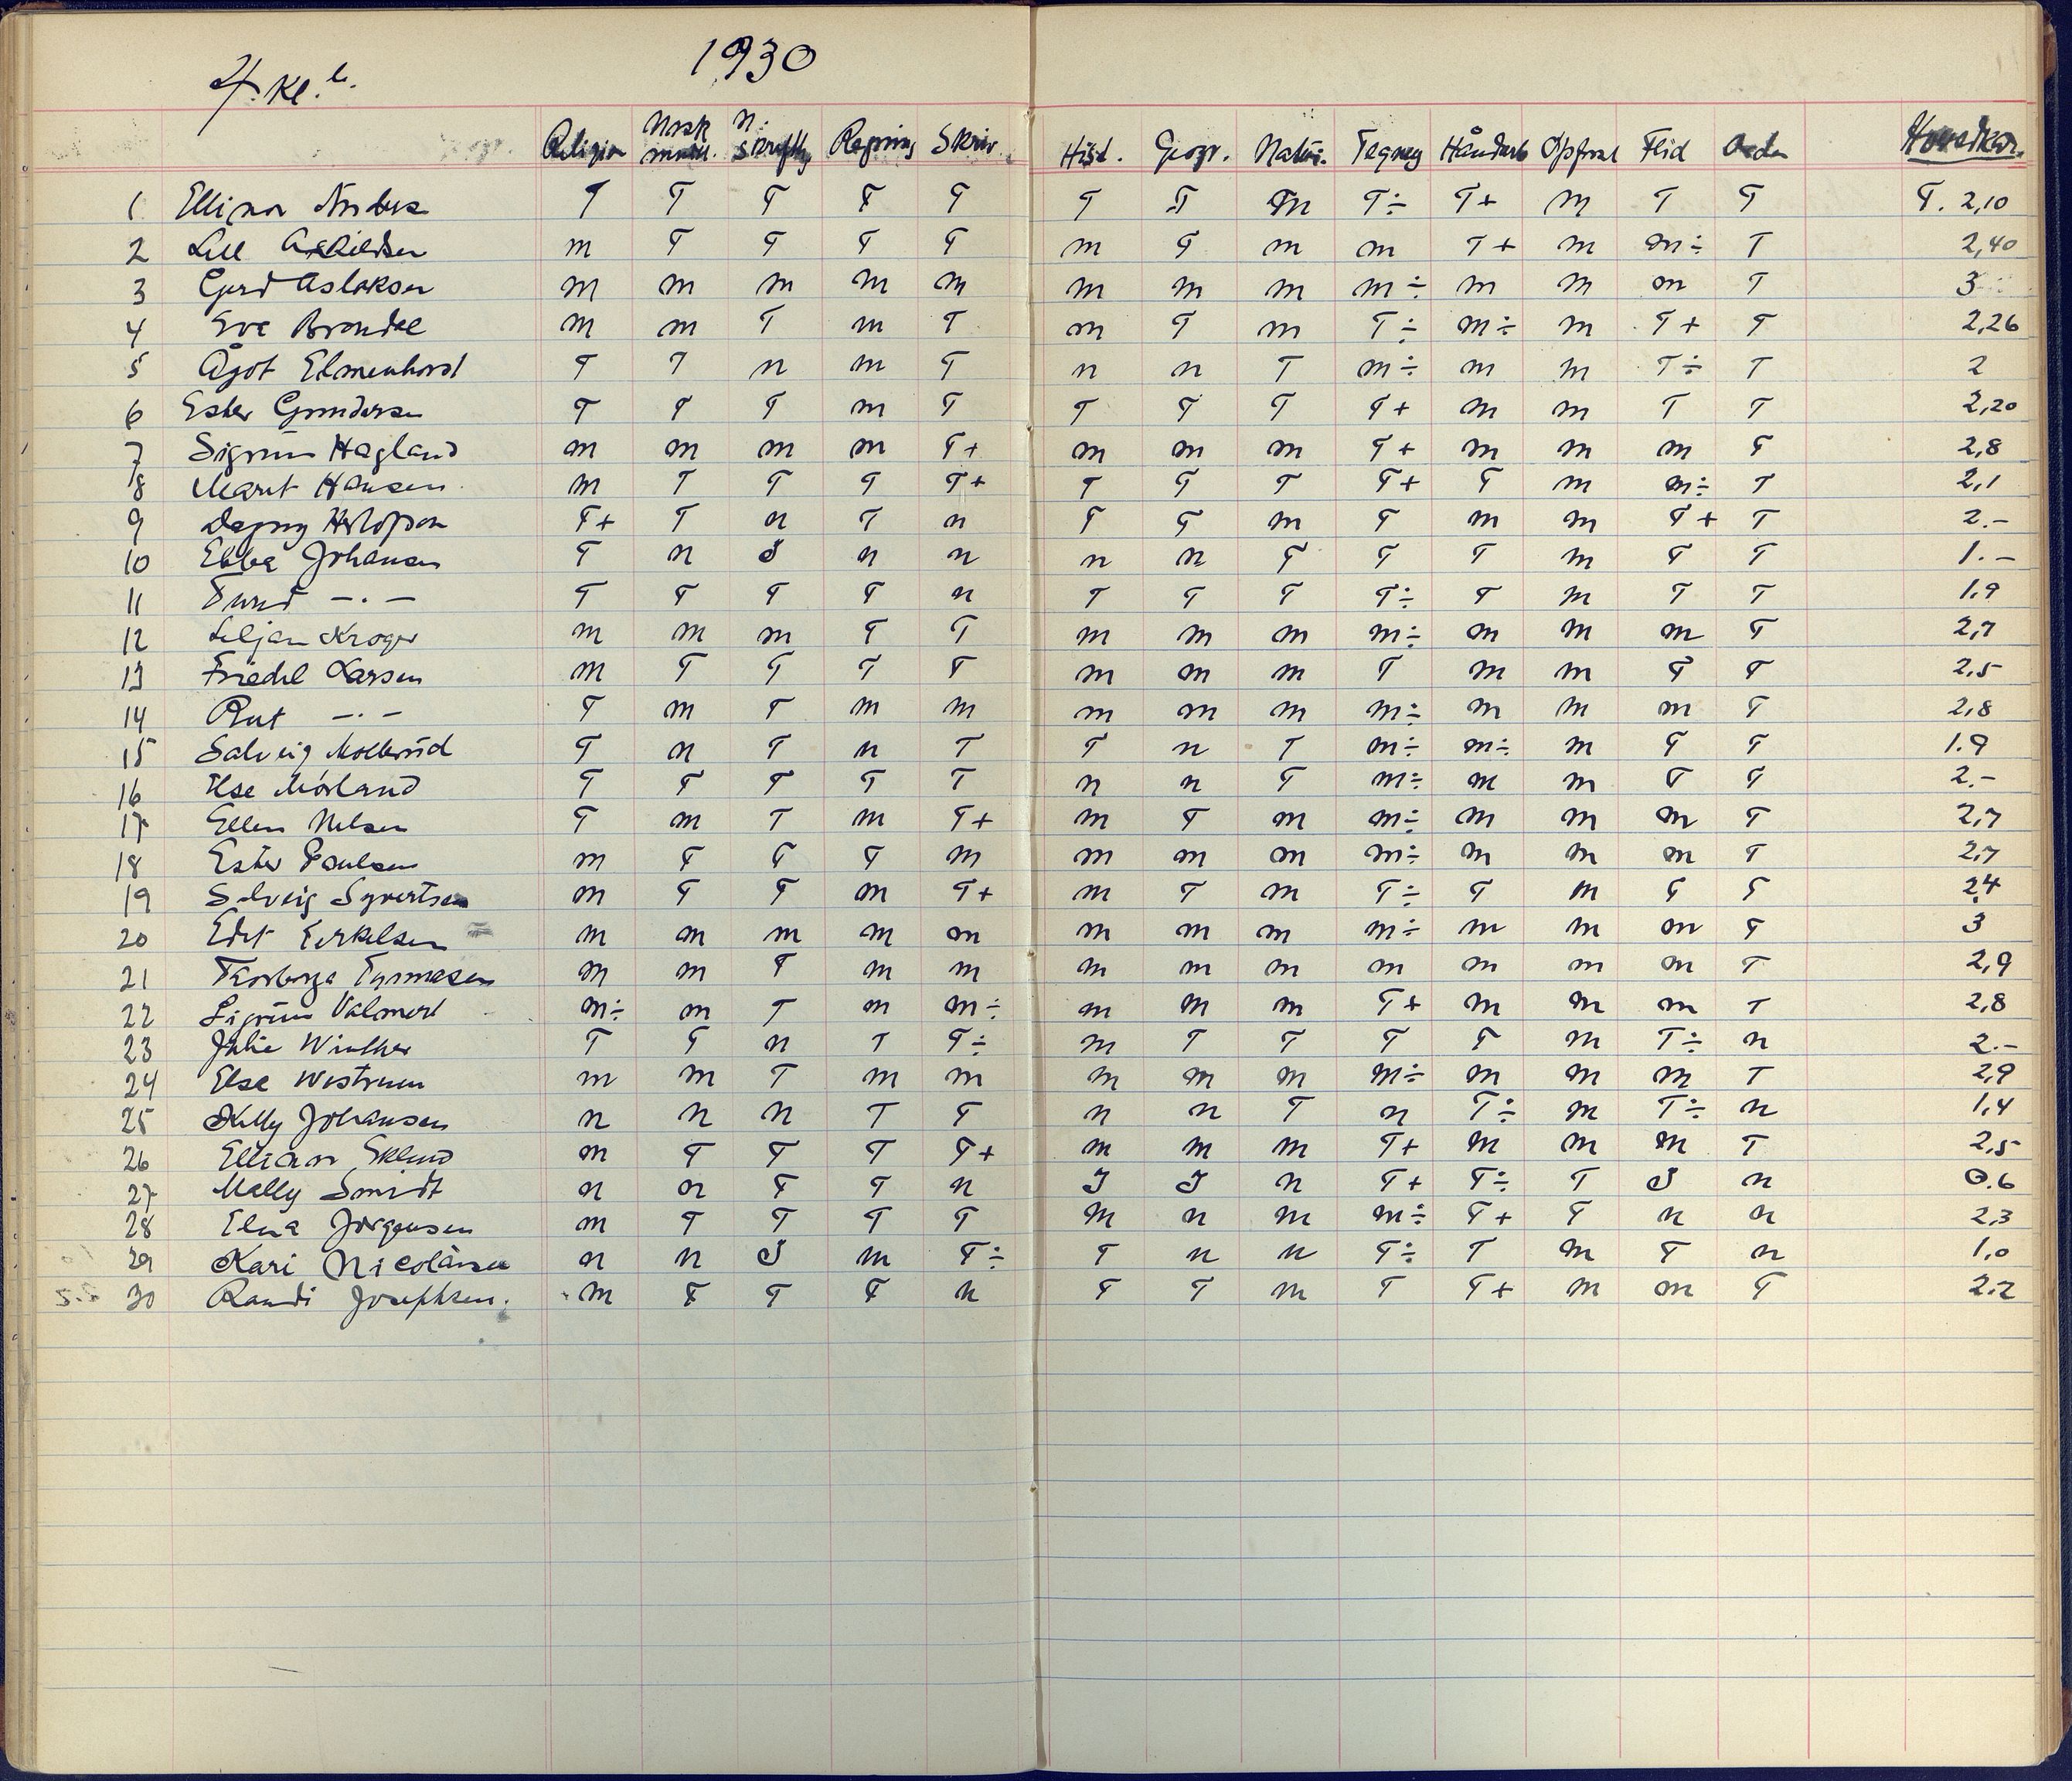 1930
4. Kl. b.
Religion Norsk mundl. N. skriftlig Regning Skriv. Hist. Geogr. Natur. Tegneg Håndarb Opførsel Flid Orden Hovedkar.
1 Ellinor T T T T T T T m T÷ T+ m T T T. 2,10
2 Lill m T T T T m T m m T+ m m÷ T 2,40
3 Gerd Aslaksen m m m m m m m m m÷ m m m T 3
4 Eva Brondal m m T m T m T m T÷ m÷ m T+ T 2,26
5 Ågot Elmenhorst T T n m T n n T m÷ m m T÷ T 2
6 Ester Gundersen T T T m T T T T T+ m m T T 2,20
7 Sigrun Hagland m m m m T+ m m m T+ m m m T 2,8
8 Marit Hansen m T T T T+ T T T T+ T m m÷ T 2,1
9 Dagny T+ T n T n T T m T m m T+ T 2.-
10 Ebba Johansen T n S n n n n T T T m T T 1.-
11 Turid -.- T T T T n T T T T÷ T m T T 1.9
12 Liljan Kroger m m m T T m m m m÷ m m m T 2,7
13 Friedel Larsen m T T T T m m m T m m T T 2,5
14 Rut -.- T m T m m m m m m÷ m m m T 2,8
15 Solveig Mollerud T n T n T T n T m÷ m÷ m T T 1.9
16 Else Mørland T T T T T n n T m÷ m m T T 2.-
17 Ellen Nilsen T m T m T+ m T m m÷ m m m T 2,7
18 Ester Paulsen m T T T m m m m m÷ m m m T 2,7
19 Solveig Syvertsen m T T m T+ m T m T÷ T m T T 2,4
20 Edit Terkelsen m m m m m m m m m÷ m m m T 3
21 Torborg m m T m m m m m m m m m T 2,9
22 Sigrun Valmert m÷ m T m m÷ m m m T+ m m m T 2,8
23 Julie Winther T T n T T÷ m T T T T m T÷ n 2.-
24 Else Westrum m m T m m m m m m÷ m m m T 2,9
25 Johansen n n n T T n n T n T÷ m T÷ n 1,4
26 Ellinor Eklund m T T T T+ m m m T+ m m m T 2,5
27 Mally Smidt n n T T n S S n T+ T÷ T S n 0.6
28 Elna Jørgensen m T T T T m n m m÷ T+ T n n 2,3
29 Kari Nicolaisen n n S m T÷ T n n T÷ T m T n 1,0
30 Randi Josephsen. m T T T n T T m T T+ m m T 2.2